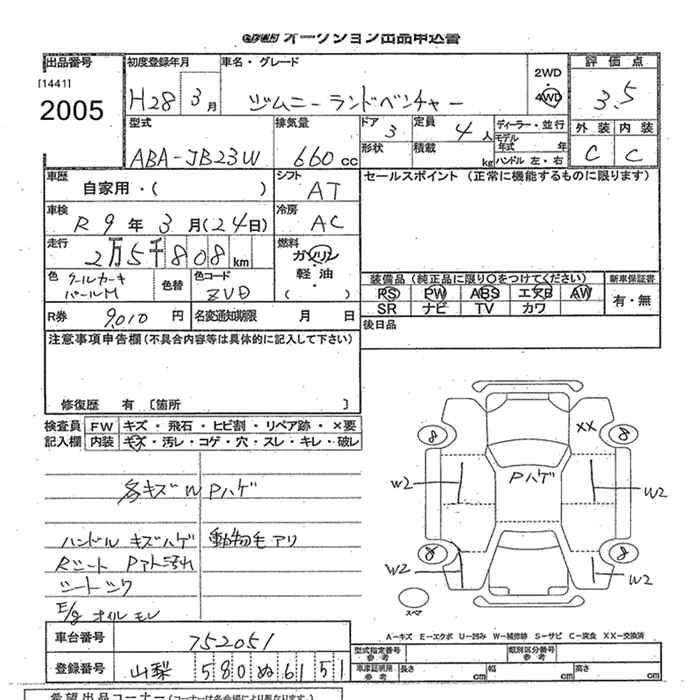 オークション出品申込書
出品番号 初度登録年月 車名・グレード 評価点
[1441]
2005
H28 3月 ジムニー ランドベンチャー 2WD 4WD 3.5
型式 排気量 ドア 3 定員 4人 ディーラー・並行 外装 内装
ABA-JB23W 660cc 形状 積載 kg モデル年式 年 ハンドル 左・右 C C
車歴 シフト セールスポイント（正常に機能するものに限ります）
自家用・（ ） AT
車検 冷房
R9年3月(24日) AC
走行 燃料
2万5千808km ガソリン 軽油・（ ）
色 色替 色コード 装備品（純正品に限り○をつけてください） 新車保証書
クールカーキパールM ZVD PS PW ABS エアB AW 有・無
SR ナビ TV カワ
R券 9,010円 名変通知期限 月 日 後日品
注意事項申告欄(不具合内容等は具体的に記入して下さい)
修復歴 有 〔箇所 〕
検査員 FW キズ・飛石・ヒビ割・リペア跡・×要
記入欄 内装 キズ・汚レ・コゲ・穴・スレ・キレ・破レ
8 XX 8
各キズW Pハゲ
Pハゲ
W2 W2
ハンドル キズハゲ 動物毛アリ
Rシート
8 8
シートシワ
W2 W2
E/g オイルモレ
スペア
A-キズ E-エクボ U-凹み W-補修跡 S-サビ C-腐食 XX-交換済
車台番号 752051
型式指定番号 参考 類別区分番号 参考
登録番号 山梨 580 ぬ 6151
車庫証明用 参考 長さ cm 幅 cm 高さ cm
希望出品コーナー(コーナーは各会場により異なります)